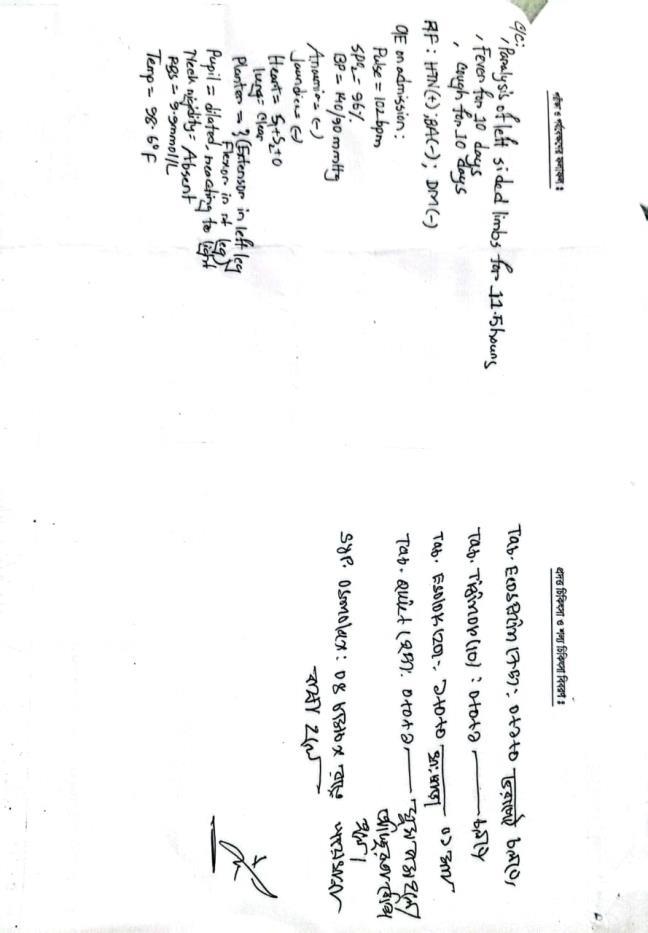 পরীক্ষা ও পর্যবেক্ষণের ফলাফল :
C/C:
, Paralysis of left sided limbs for 11.5 hours
, Fever for 10 days
, Cough for 10 days
RF : HTN(+) ; BA(-) ; DM(-)
O/E on admission :
Pulse = 102 bpm
SPO2 = 96%
BP = 140/90 mmHg
Anaemia = (-)
Jaundice = (-)
Heart = S1+S2+0
lung = clear
Planter = } (Extensor in left leg
Flexor in rt leg)
Pupil = dilated, reacting to light
Neck rigidity = Absent
RBS = 9.9mmol/L
Temp = 98.6°F
প্রদত্ত চিকিৎসা ও শল্য চিকিৎসা বিবরণ :
Tab. Ecosprin (৭৫): ০+১+০ চলবে
Tab. (10) : ০+০+১ চলবে
Tab. Esolok (20): ১+০+১
Tab. Quiet (২৫): ০+০+১
Syp. Osmolax : ০৪ চামচ